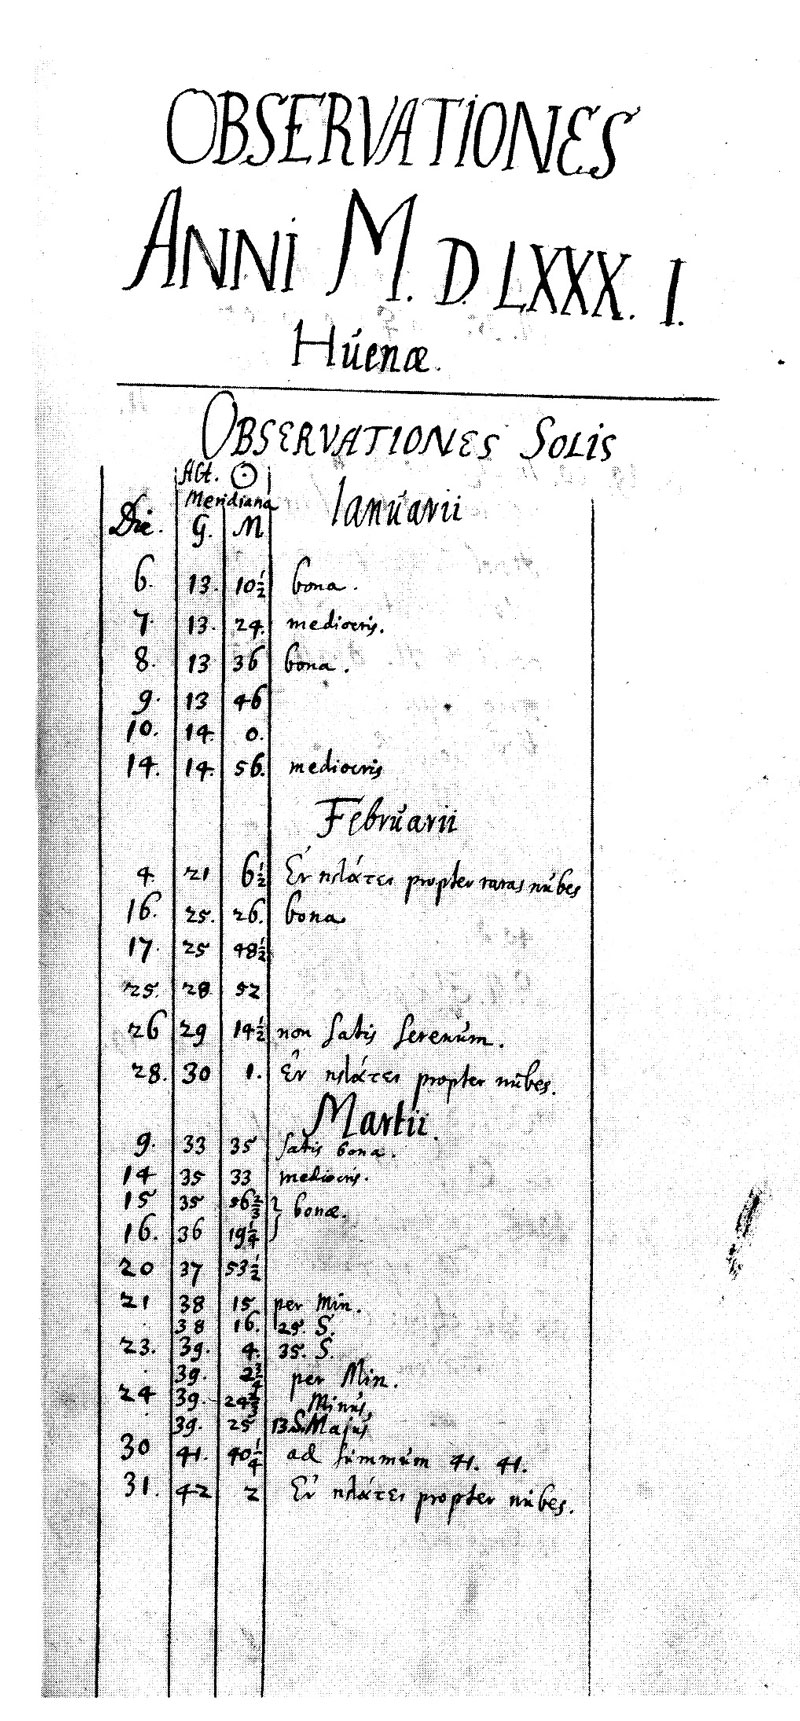 OBSERVATIONES
ANNI M. D. LXXX. I.
Húenæ.
OBSERVATIONES SOLIS
Alt. ☉
Meridiana Ianúarii
Die. G. M
6. 13. 10½ bona.
7. 13. 24. mediocris.
8. 13 36 bona.
9. 13 46
10. 14. 0.
14. 14. 56. mediocris
Febrúarii
4. 21 6½ Ἐν πλάτει propter raras núbes
16. 25. 26. bona
17. 25 48½
25. 28 52
26 29 14½ non satis serenúm.
28. 30 1. Ἐν πλάτει propter núbes.
Martii.
9. 33 35 satis bona.
14 35 33 mediocris.
15 35 56⅔ } bonæ.
16. 36 19¼
20 37 53½
21 38 15 per Min.
38 16. 25. S.
23. 39. 4. 35. S.
39. 2¾ per Min.
24 39. 24⅔ Minús,
39. 25 13. S. Majús
30 41. 40¼ ad súmmúm 41. 41.
31. 42 2 Ἐν πλάτει propter núbes.